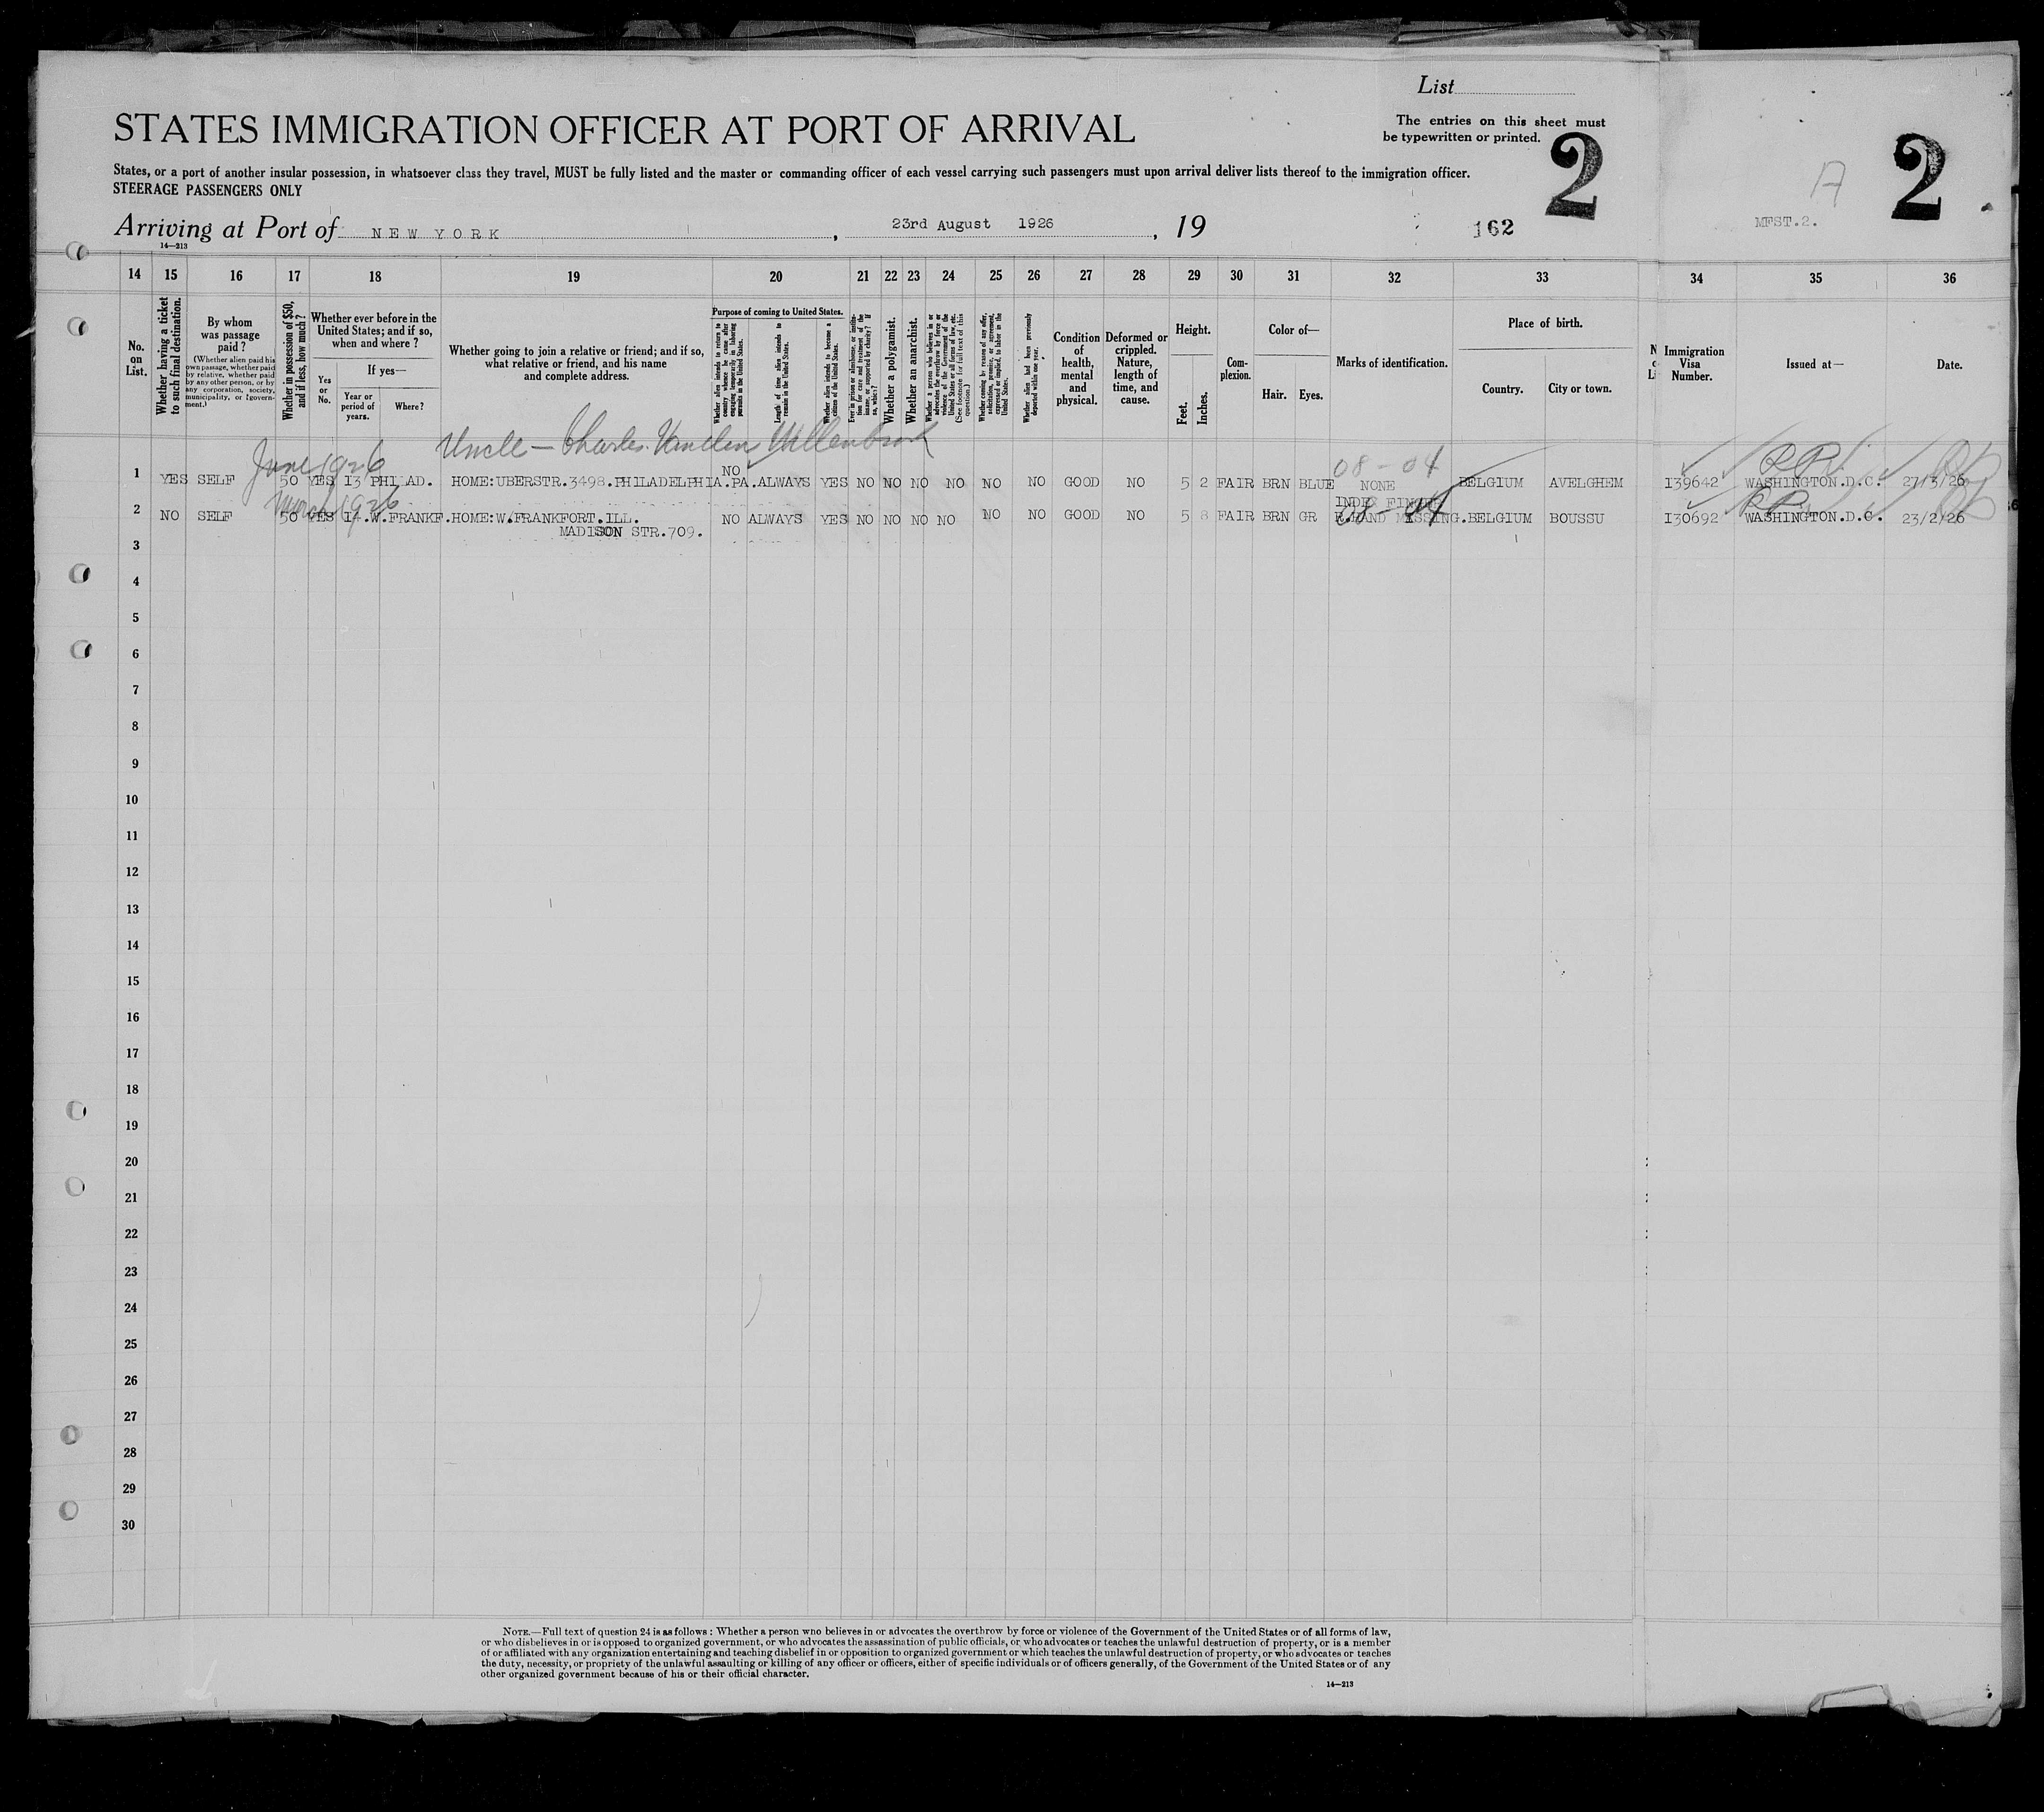 List
STATES IMMIGRATION OFFICER AT PORT OF ARRIVAL
The entries on this sheet must
be typewritten or printed.
2
2
A
States, or a port of another insular possession, in whatsoever class they travel, MUST be fully listed and the master or commanding officer of each vessel carrying such passengers must upon arrival deliver lists thereof to the immigration officer.
STEERAGE PASSENGERS ONLY
Arriving at Port of NEW YORK, 23rd August 1926, 19
162
MFST.2.
14—213
14 15 16 17 18 19 20 21 22 23 24 25 26 27 28 29 30 31 32 33 34 35 36
No. on List.
Whether having a ticket to such final destination.
By whom was passage paid?
(Whether alien paid his own passage, whether paid by relative, whether paid by any other person, or by any corporation, society, municipality, or government.)
Whether in possession of $50, and if less, how much?
Whether ever before in the United States; and if so, when and where?
Yes or No.
If yes—
Year or period of years.
Where?
Whether going to join a relative or friend; and if so, what relative or friend, and his name and complete address.
Purpose of coming to United States.
Whether alien intends to return to country whence he came after engaging temporarily in laboring pursuits in the United States.
Length of time alien intends to remain in the United States.
Whether alien intends to become a citizen of the United States.
Ever in prison or almshouse, or institution for care and treatment of the insane, or supported by charity? If so, which?
Whether a polygamist.
Whether an anarchist.
Whether a person who believes in or advocates the overthrow by force or violence of the Government of the United States or all forms of law, etc. (See footnote for full text of this question.)
Whether coming by reason of any offer, solicitation, promise, or agreement, expressed or implied, to labor in the United States.
Whether alien had been previously deported within one year.
Condition of health, mental and physical.
Deformed or crippled. Nature, length of time, and cause.
Height.
Feet.
Inches.
Complexion.
Color of—
Hair.
Eyes.
Marks of identification.
Place of birth.
Country.
City or town.
Immigration Visa Number.
Issued at—
Date.
June 1926
Uncle — Charles
08-04
1 YES SELF 50 YES 13 PHILAD. HOME:UBERSTR.3498.PHILADELPHIA.PA. NO ALWAYS YES NO NO NO NO NO NO GOOD NO 5 2 FAIR BRN BLUE NONE BELGIUM AVELGHEM 139642 WASHINGTON.D.C. 27/3/26
March 1926
08-04
2 NO SELF 50 YES 14 W.FRANKF. HOME:W.FRANKFORT.ILL. NO ALWAYS YES NO NO NO NO NO NO GOOD NO 5 8 FAIR BRN GR HAND MISSING. BELGIUM BOUSSU 130692 WASHINGTON.D.C. 23/2/26
MADISON STR.709.
3
4
5
6
7
8
9
10
11
12
13
14
15
16
17
18
19
20
21
22
23
24
25
26
27
28
29
30
NOTE.—Full text of question 24 is as follows: Whether a person who believes in or advocates the overthrow by force or violence of the Government of the United States or of all forms of law,
or who disbelieves in or is opposed to organized government, or who advocates the assassination of public officials, or who advocates or teaches the unlawful destruction of property, or is a member
of or affiliated with any organization entertaining and teaching disbelief in or opposition to organized government or which teaches the unlawful destruction of property, or who advocates or teaches
the duty, necessity, or propriety of the unlawful assaulting or killing of any officer or officers, either of specific individuals or of officers generally, of the Government of the United States or of any
other organized government because of his or their official character.
14—213